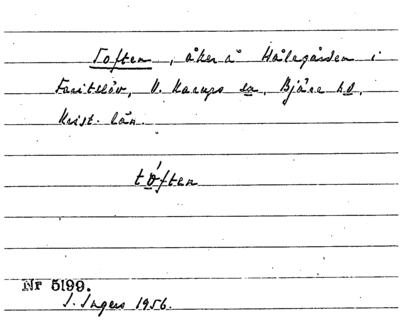 Toften, åker å Hålagården i
Faritslöv, V. Karups sn, Bjäre hd,
Krist. län.
tóften
Nr 5199.
I. Ingers 1956.